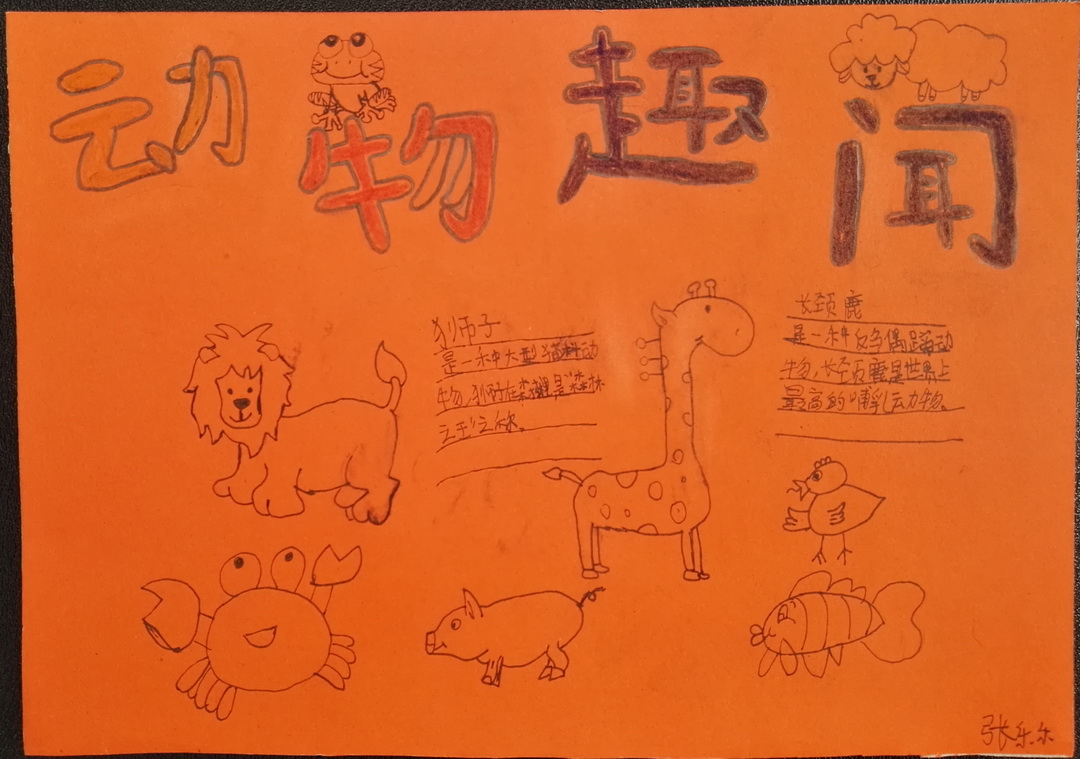 动物趣闻
狮子
是一种大型猫科动
物,狮子在森林里是森林
之王之称。
长颈鹿
是一种反刍偶蹄动
物,长颈鹿是世界上
最高的哺乳动物。
张乐乐